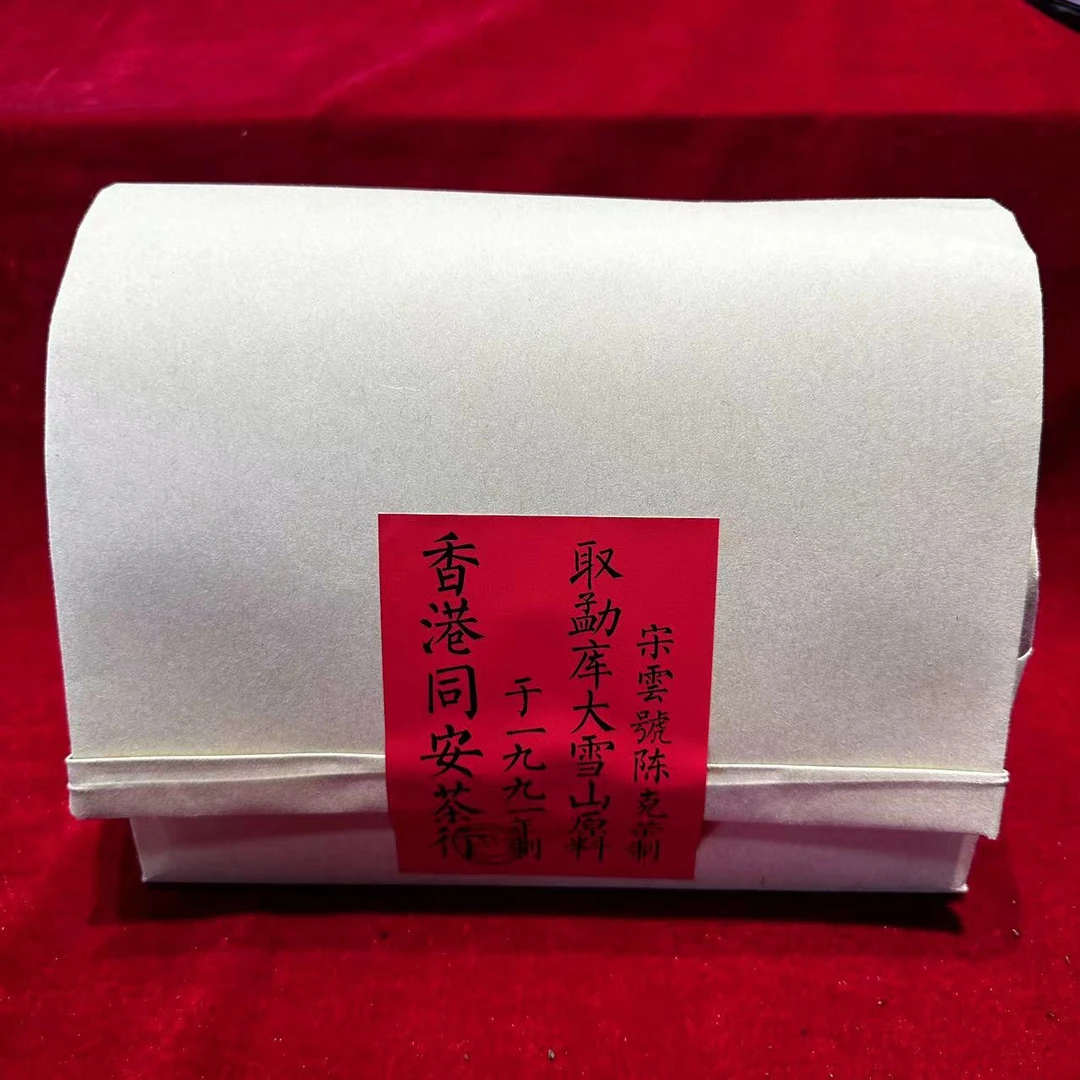 宋雲號陈克荣制
取勐库大雪山原料
于一九九一年制
香港同安茶行